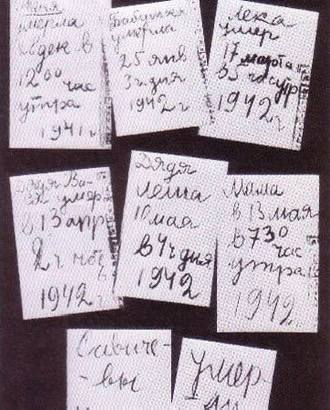 Женя
умерла
28 дек в
12 00 час
утра
1941 г
Бабушка
умерла
25 янв
3 ч дня
1942 г
Лека
умер
17 марта
в 5 час утр
1942 г
Дядя Ва-
ся умер
в 13 апр
2 ч ноч
1942 г
Дядя
Леша
10 мая
в 4 ч дня
1942
Мама
в 13 мая
в 7 30
час
утра
1942
Савиче-
-вы
умер-